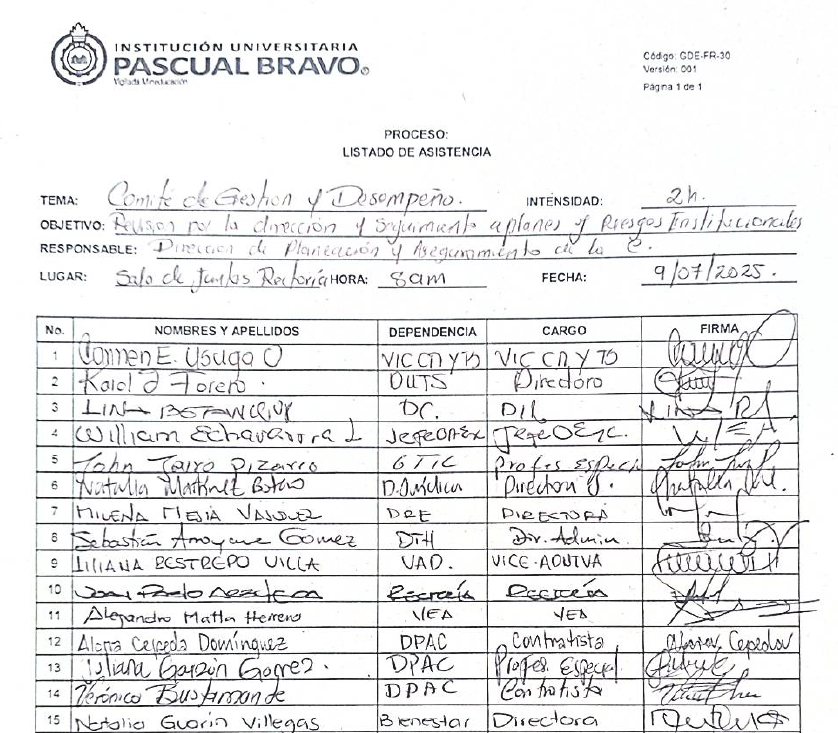 INSTITUCIÓN UNIVERSITARIA
PASCUAL BRAVO®
Vigilada Mineducación
Código: GDE-FR-30
Versión: 001
Página 1 de 1
PROCESO:
LISTADO DE ASISTENCIA
TEMA: Comité de Gestion y Desempeño. INTENSIDAD: 2h.
OBJETIVO: por la dirección y Seguimiento a planes y Riesgos Institucionales
RESPONSABLE: Dirección de Planeación y Aseguramiento de la C.
LUGAR: Sala de Juntas Rectoría HORA: 8am FECHA: 9/07/2025.
No. NOMBRES Y APELLIDOS DEPENDENCIA CARGO FIRMA
1 Carmen E. Usuga O
2 Karol J Forero. Directora
3 LINA BETANCUR
4 William Echavarria L
5 John Jairo Pizarro GTIC Profes especi John
6 Natalia Martínez Botero D. Jurídica Directora J.
7 MILENA MEJIA VASQUEZ DRE DIRECTORA
8 Sebastián Gomez DTH Dir. Admin
9 LILIANA RESTREPO VILLA VAD. VICE-ADTIVA
10
11 Alejandro Matta Herrero VEA VEA
12 Domínguez DPAC Contratista Cepeda
13 Juliana Garzón Gomez. DPAC Profes. Especial.
14 Verónica Bustamante DPAC Contratista
15 Natalia Guarin Villegas Bienestar Directora